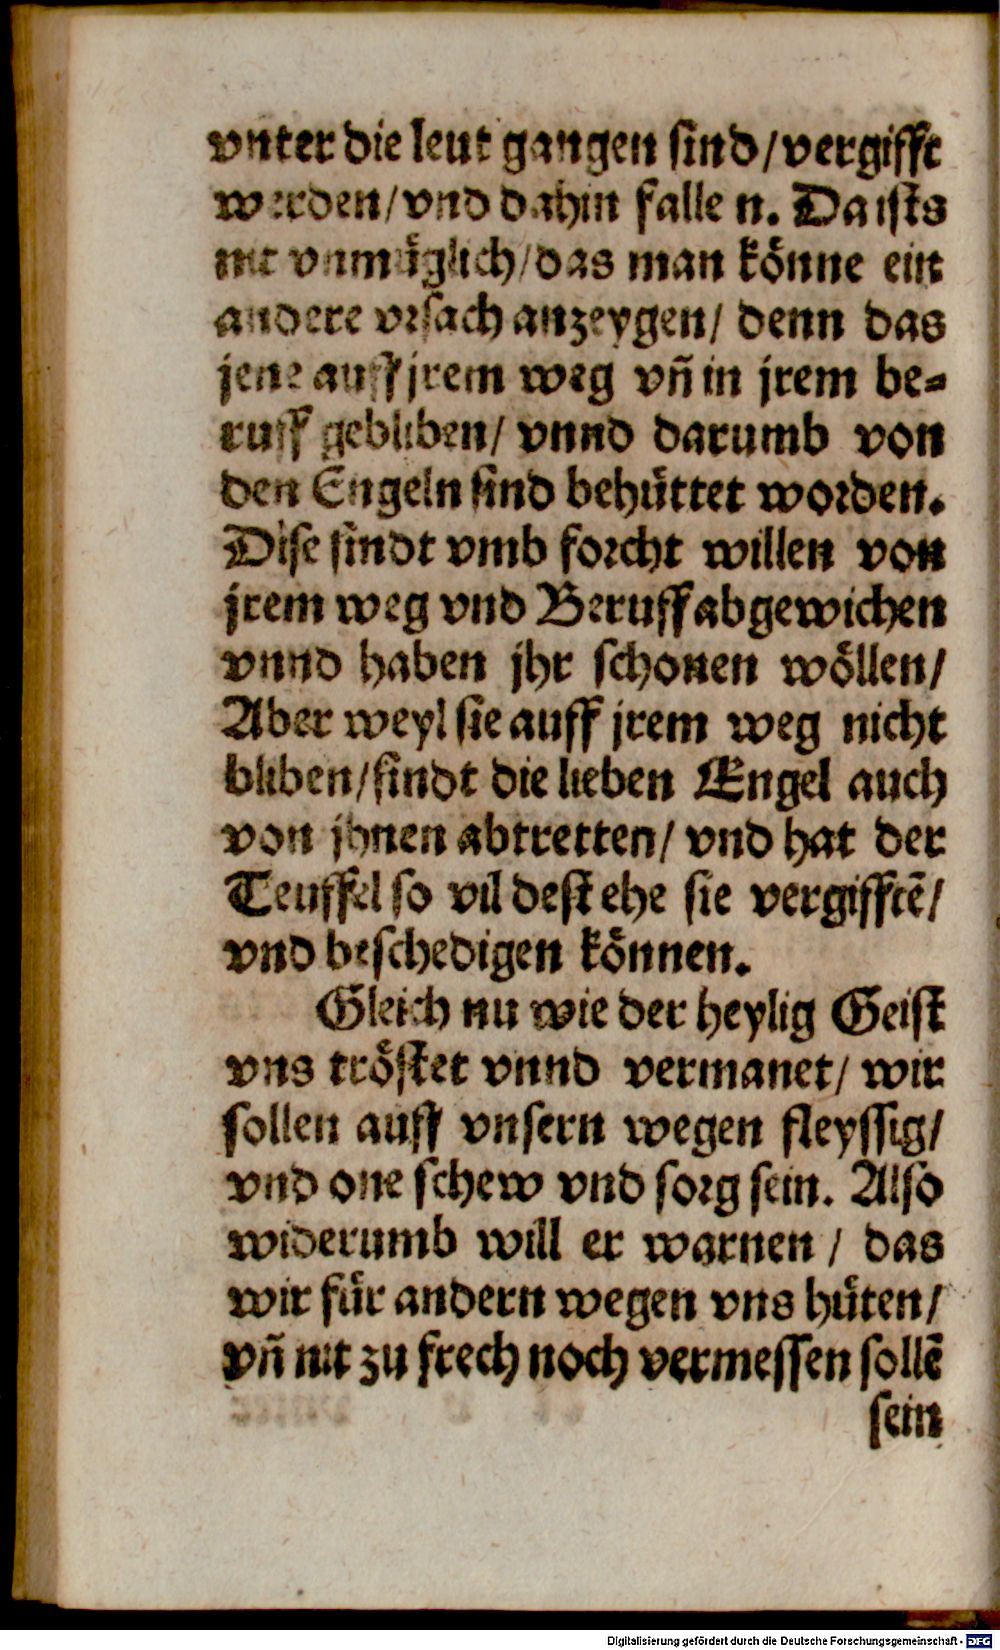 vnter die leut gangen sind/vergifft
werden/vnd dahin falle n. Da ists
nit vnmüglich/das man könne ein
andere vrsach anzeygen/ denn das
jene auff jrem weg vñ in jrem be-
ruff gebliben/ vnnd darumb von
den Engeln sind behüttet worden.
Dise sindt vmb forcht willen von
jrem weg vnd Beruff abgewichen
vnnd haben jhr schonen wöllen/
Aber weyl sie auff jrem weg nicht
bliben/sindt die lieben Engel auch
von jhnen abtretten/ vnd hat der
Teuffel so vil dest ehe sie vergifftẽ/
vnd beschedigen können.
Gleich nu wie der heylig Geist
vns tröstet vnnd vermanet/ wir
sollen auff vnsern wegen fleyssig/
vnd one schew vnd sorg sein. Also
widerumb will er warnen / das
wir für andern wegen vns hüten/
vñ nit zu frech noch vermessen sollẽ
sein
Digitalisierung gefördert durch die Deutsche Forschungsgemeinschaft - DFG